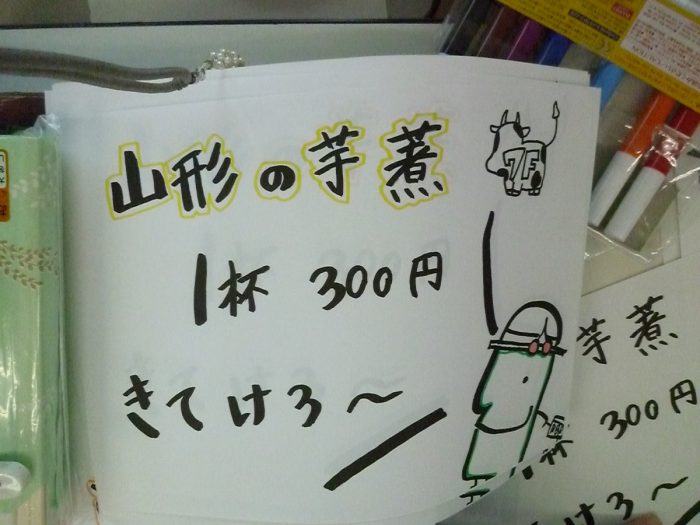 山形の芋煮
7F
1杯 300円
きてけろ～
芋煮
杯 300円
てけろ～